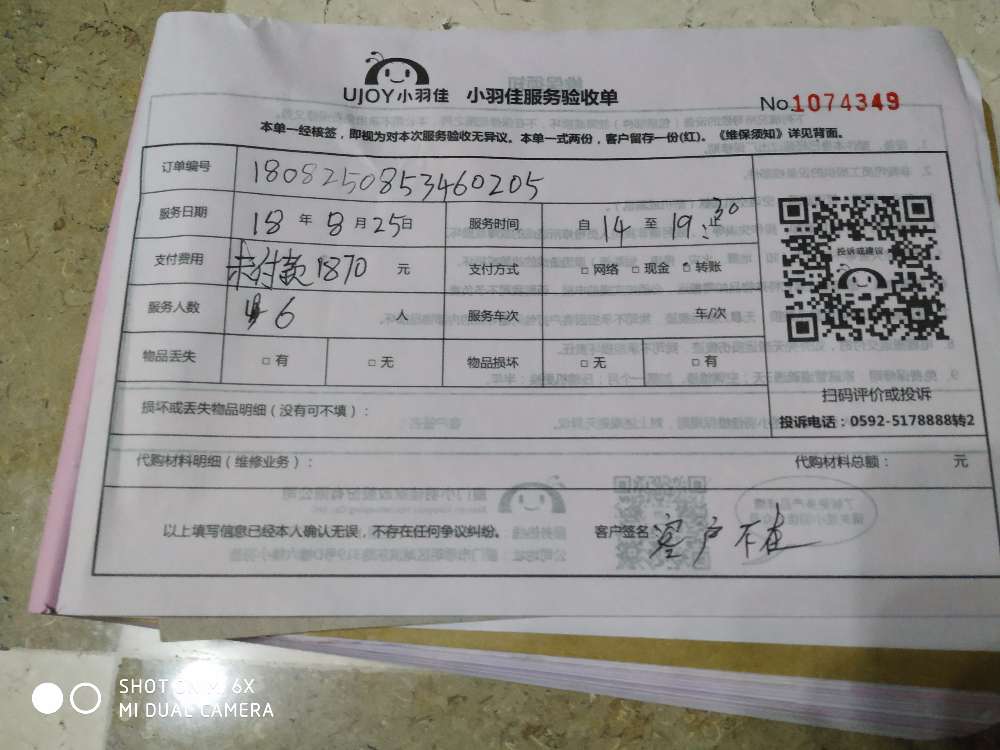 UJOY小羽佳 小羽佳服务验收单 No.1074349
本单一经核签，即视为对本次服务验收无异议。本单一式两份，客户留存一份(红)。《维保须知》详见背面。
订单编号 1808250853460205
服务日期 18 年 8 月 25 日 服务时间 自 14 至 19:30 止
支付费用 未付款 1870 元 支付方式 □ 网络 □ 现金 □ 转账
服务人数 6 人 服务车次 车/次
物品丢失 □ 有 □ 无 物品损坏 □ 无 □ 有
投诉或建议
扫码评价或投诉
投诉电话：0592-5178888转2
损坏或丢失物品明细（没有可不填）：
代购材料明细（维修业务）： 代购材料总额： 元
以上填写信息已经本人确认无误，不存在任何争议纠纷。 客户签名：客户不在
SHOT ON MI 6X
MI DUAL CAMERA